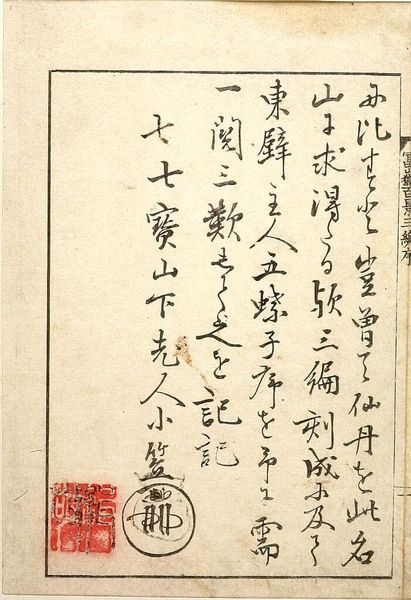 富嶽百景三編序
豈曽て仙丹を此名
山に求得たる歟三編刻成に及て
東壁主人五蝶子序を予に需
一閲三歎して之を記
七七寶山下老人小笠